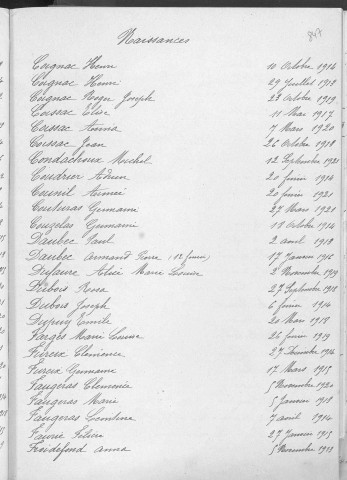 Naissances
847
Coignac Henri 10 Octobre 1914
Coignac Henri 29 Juillet 1918
Coignac Joseph 23 Octobre 1919
Coissac Elise 11 Mai 1917
Coissac Anna 7 Mars 1920
Coissac Jean 26 Octobre 1918
Condachoux Michel 12 Septembre 1921
Coudrier Adrien 20 Juin 1914
Counil Aimée 20 Juin 1921
Couturas Germaine 27 Mars 1921
Couzelas Germaine 18 Octobre 1914
Daubec Paul 2 Août 1918
Daubec Armand 17 Janvier 1916
Dufaure Alice Marie Louise 2 Novembre 1919
Dubois Rosa 27 Septembre 1918
Dubois Joseph 6 Juin 1914
Dupuy Emile 20 Mai 1918
Farges Marie Louise 26 Juin 1919
Fureix Clémence 27 1916
Fureix Germaine 17 Mars 1915
Faugeras Clémence 5 Novembre 1920
Faugeras Marie 5 Janvier 1918
Faugeras 7 Août 1914
Faurie 27 Janvier 1915
Froidefond Anna 5 Novembre 1918